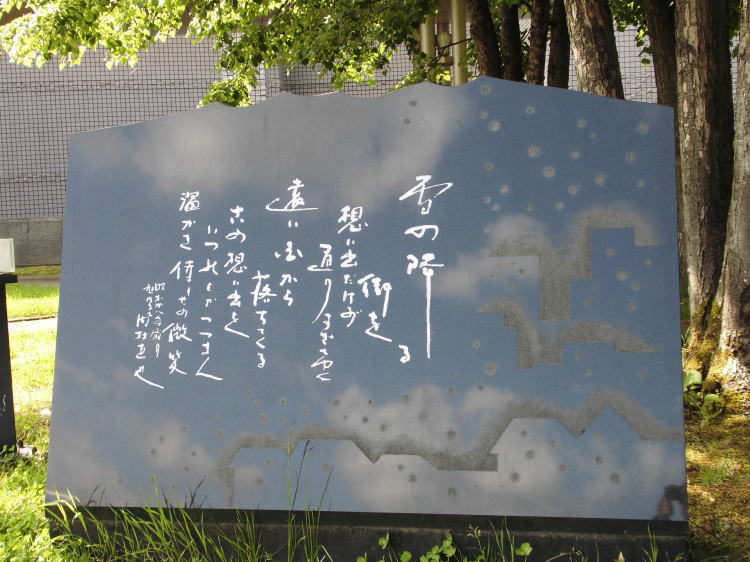 雪の降る
街を
想い出だけが
通りすぎてゆく
遠い国から
落ちてくる
この想い出を
いつの日かつつまん
温かき倖せの微笑
内村直也